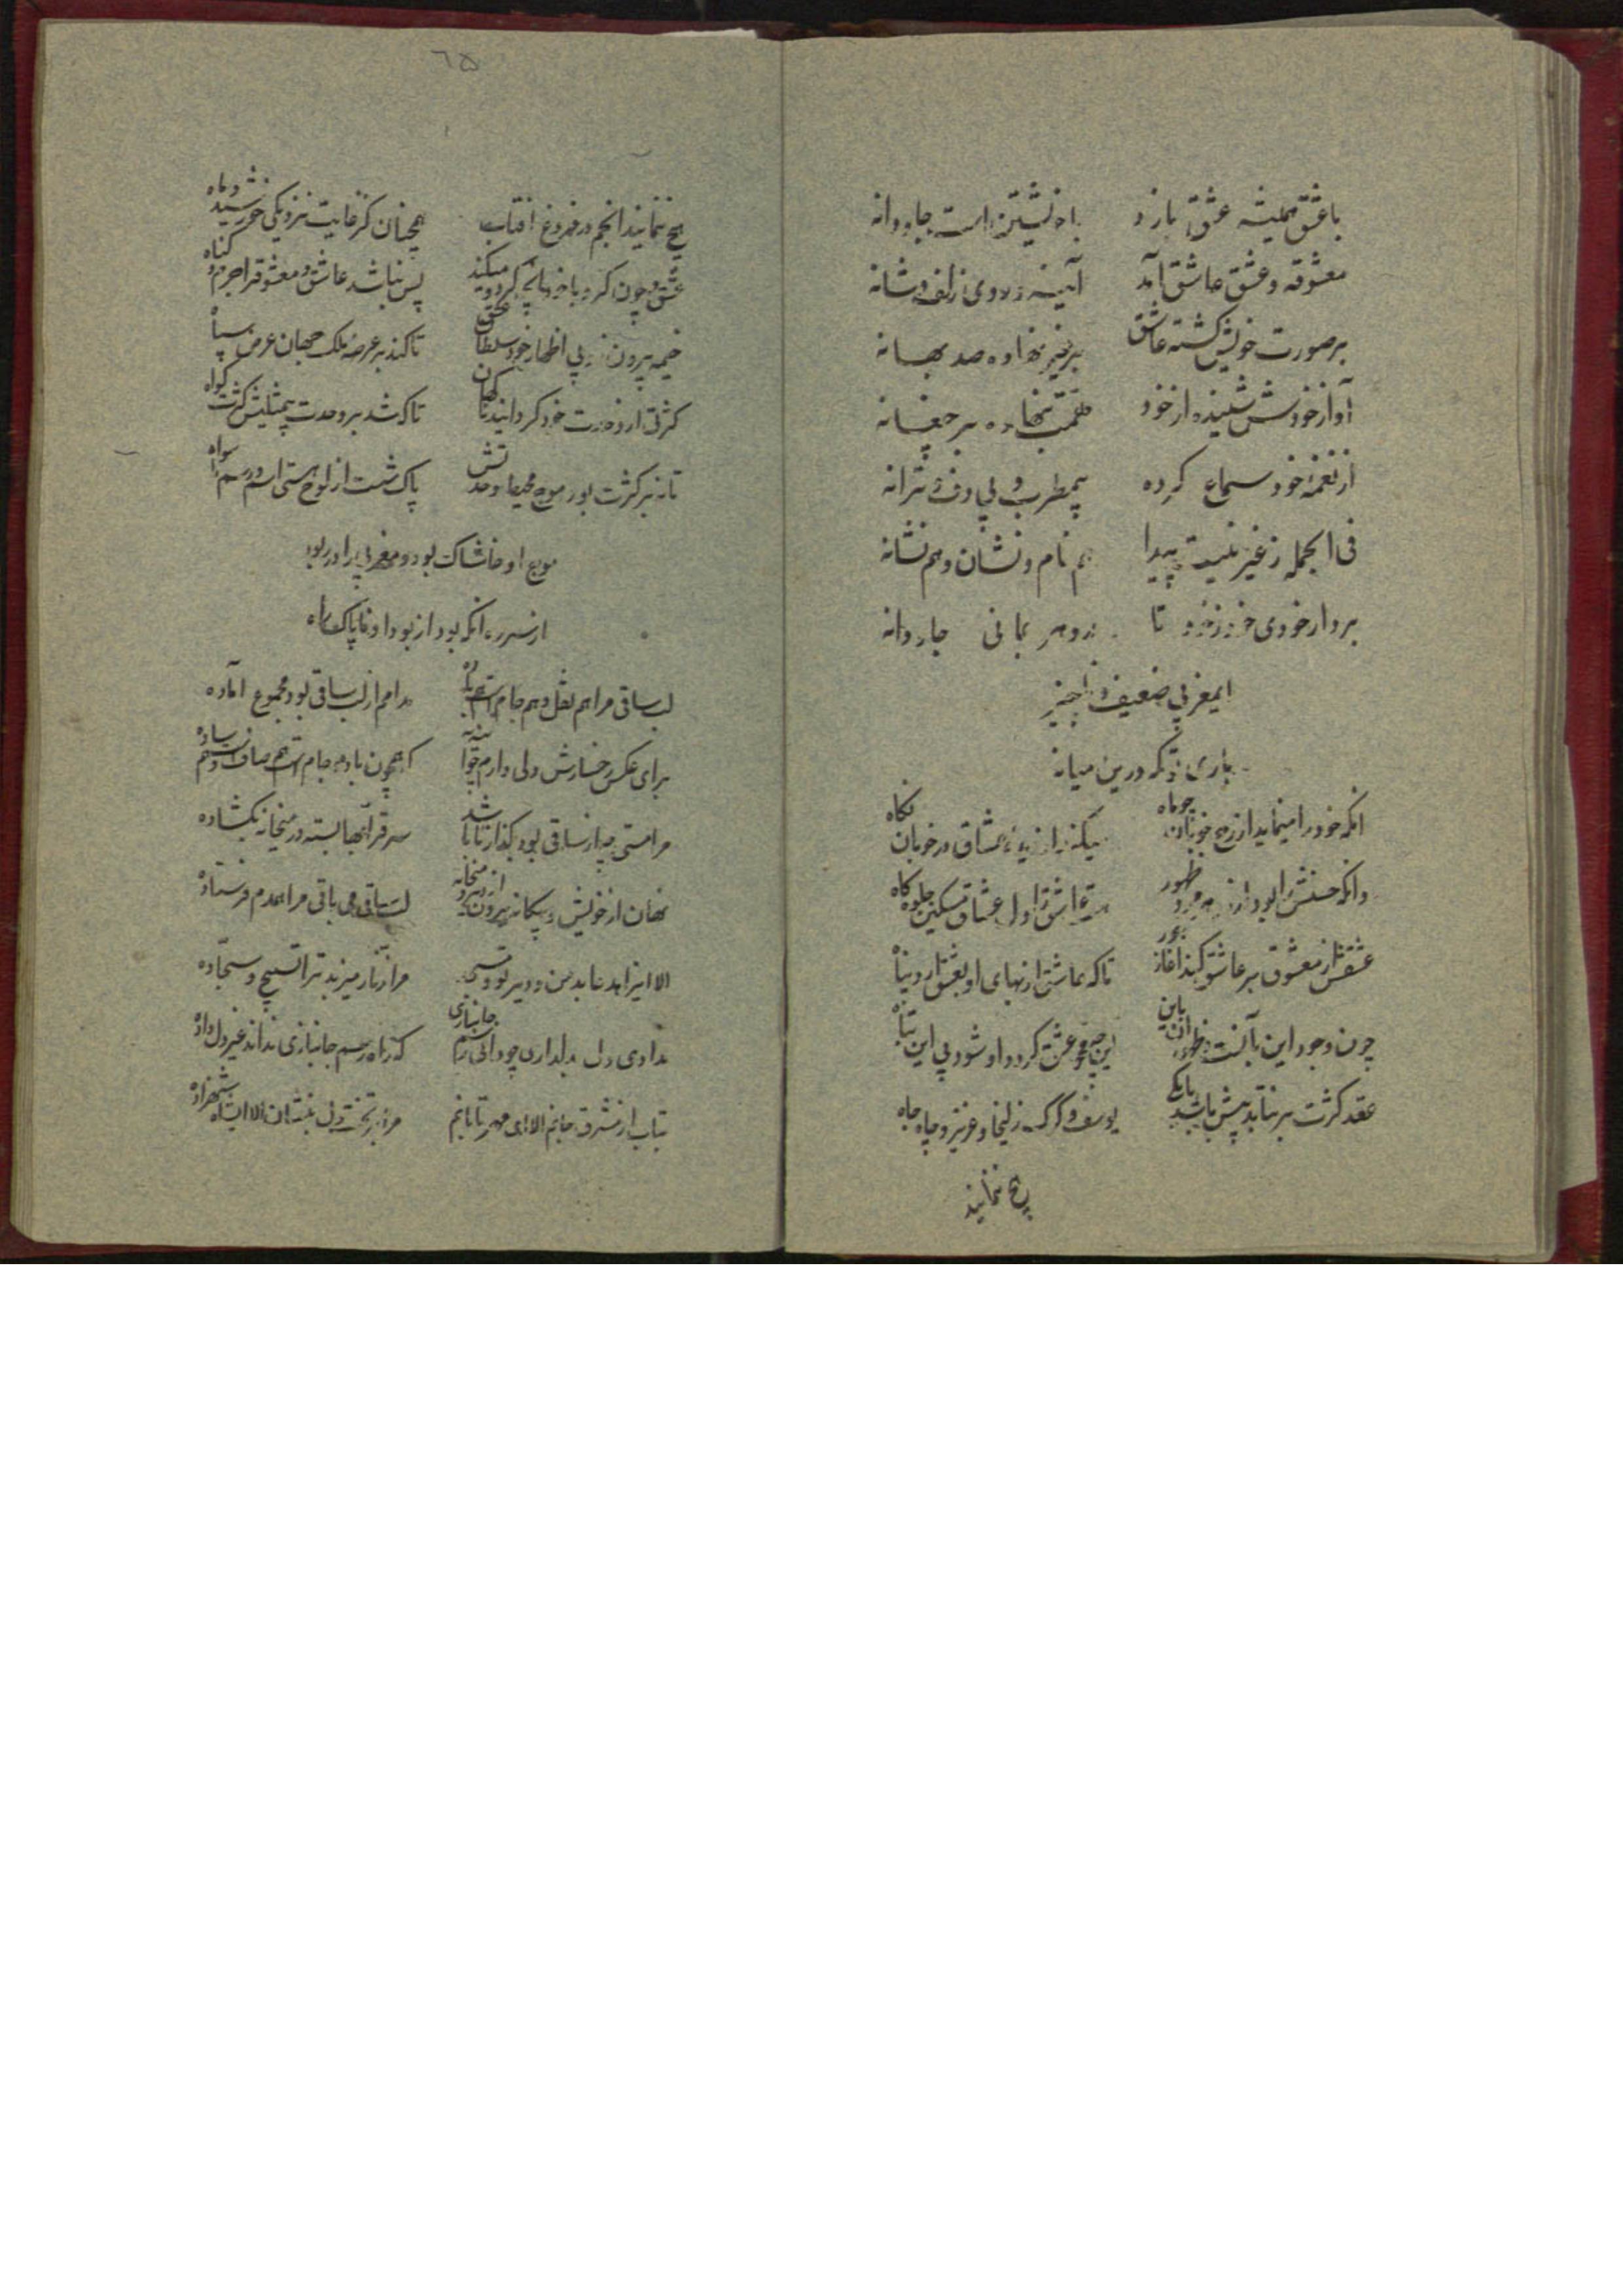 با عشق همیشه عشق بازد با خویشتن است جاودانه
معشوقه و عشق عاشق آمد آئینه و روی و زلف و شانه
بر صورت خویش گشته عاشق بر غیر نهاده صد بهانه
آواز خودش شنیده از خود تهمت بنهاده بر چغانه
از نغمه خود سماع کرده بیمطرب و بی دف و ترانه
فی الجمله ز غیر نیست پیدا هم نام و نشان و هم نشانه
بردار خودی خود ز خود تا در وهر بمانی جاودانه
ایمغربی ضعیف و ناچیز
باری تو که درین میانه
انکه خود را مینماید از رخ خوبان چو ماه میکند از دیده عشاق در خوبان نکاه
وانکه حسنش را بود از روی ظهور عاشقی از اول عشاق مسکین جلوه کاه
عشقش از معشوق بر عاشق کند اغاز جور تا که عاشق از نهاى او بعشق ارد پناه
چون وجود این بآنست و ظهور ان باین این چو محو عشق کردد او شود بی این تباه
عقد کثرت بر نتابد پیش باشد با یکی یوسف و کرک و زلیخا و عزیز و چاه و جاه
هیچ ننمایند
٦۵
هیچ ننمایند انجم در فروغ افتاب همچنان کز غایت نزدیکی خورشید و ماه
عشق چون کردد با خود هرچه میکند پس نباشد عاشق و معشوق را جرم و کناه
خیمه بیرون زد پی اظهار خود سلطان عشق تا کند بر عرصه ملک جهان عرض سپاه
کثرتی از وحدت خود کرداند تا کشد بر وحدت بیمثلیش کثرت کواه
تا نه بر کثرت بود موج محیط وحدتش پاک شست از لوح هستی اسم و رسم ما سواه
موج او خاشاک بود و مغربی را در ربود
از سر ره انکه بود از بود او خاپاک راه
لب ساقی مرا هم نقل و هم جامست هم باده مدامم از لب ساقی بود مجموع آماده
برای عکس رخسارش دلی دارم چو آئینه که همچون باده و جامست هم صاف و هم ساده
مرا مستی چو از ساقی بود بکذار تا باشد سر قرابها بسته در میخانه نکشاده
نهان از خویش و بیکانه برون از میخانه لب ساقی می باقی مرا همدم فرستاده
الا ایزاهد عابد من و دیر تو و مسجد مرا زنار میزیبد ترا تسبیح و سجاده
ندادی دل بدلداری چو دانی رسم جانبازی که راه و رسم جانبازی نداند غیر دل داده
بتاب از مشرق جانم الا ای مهر تابانم مرا بر تخت دل بنشان الا ای شاه شهزاده